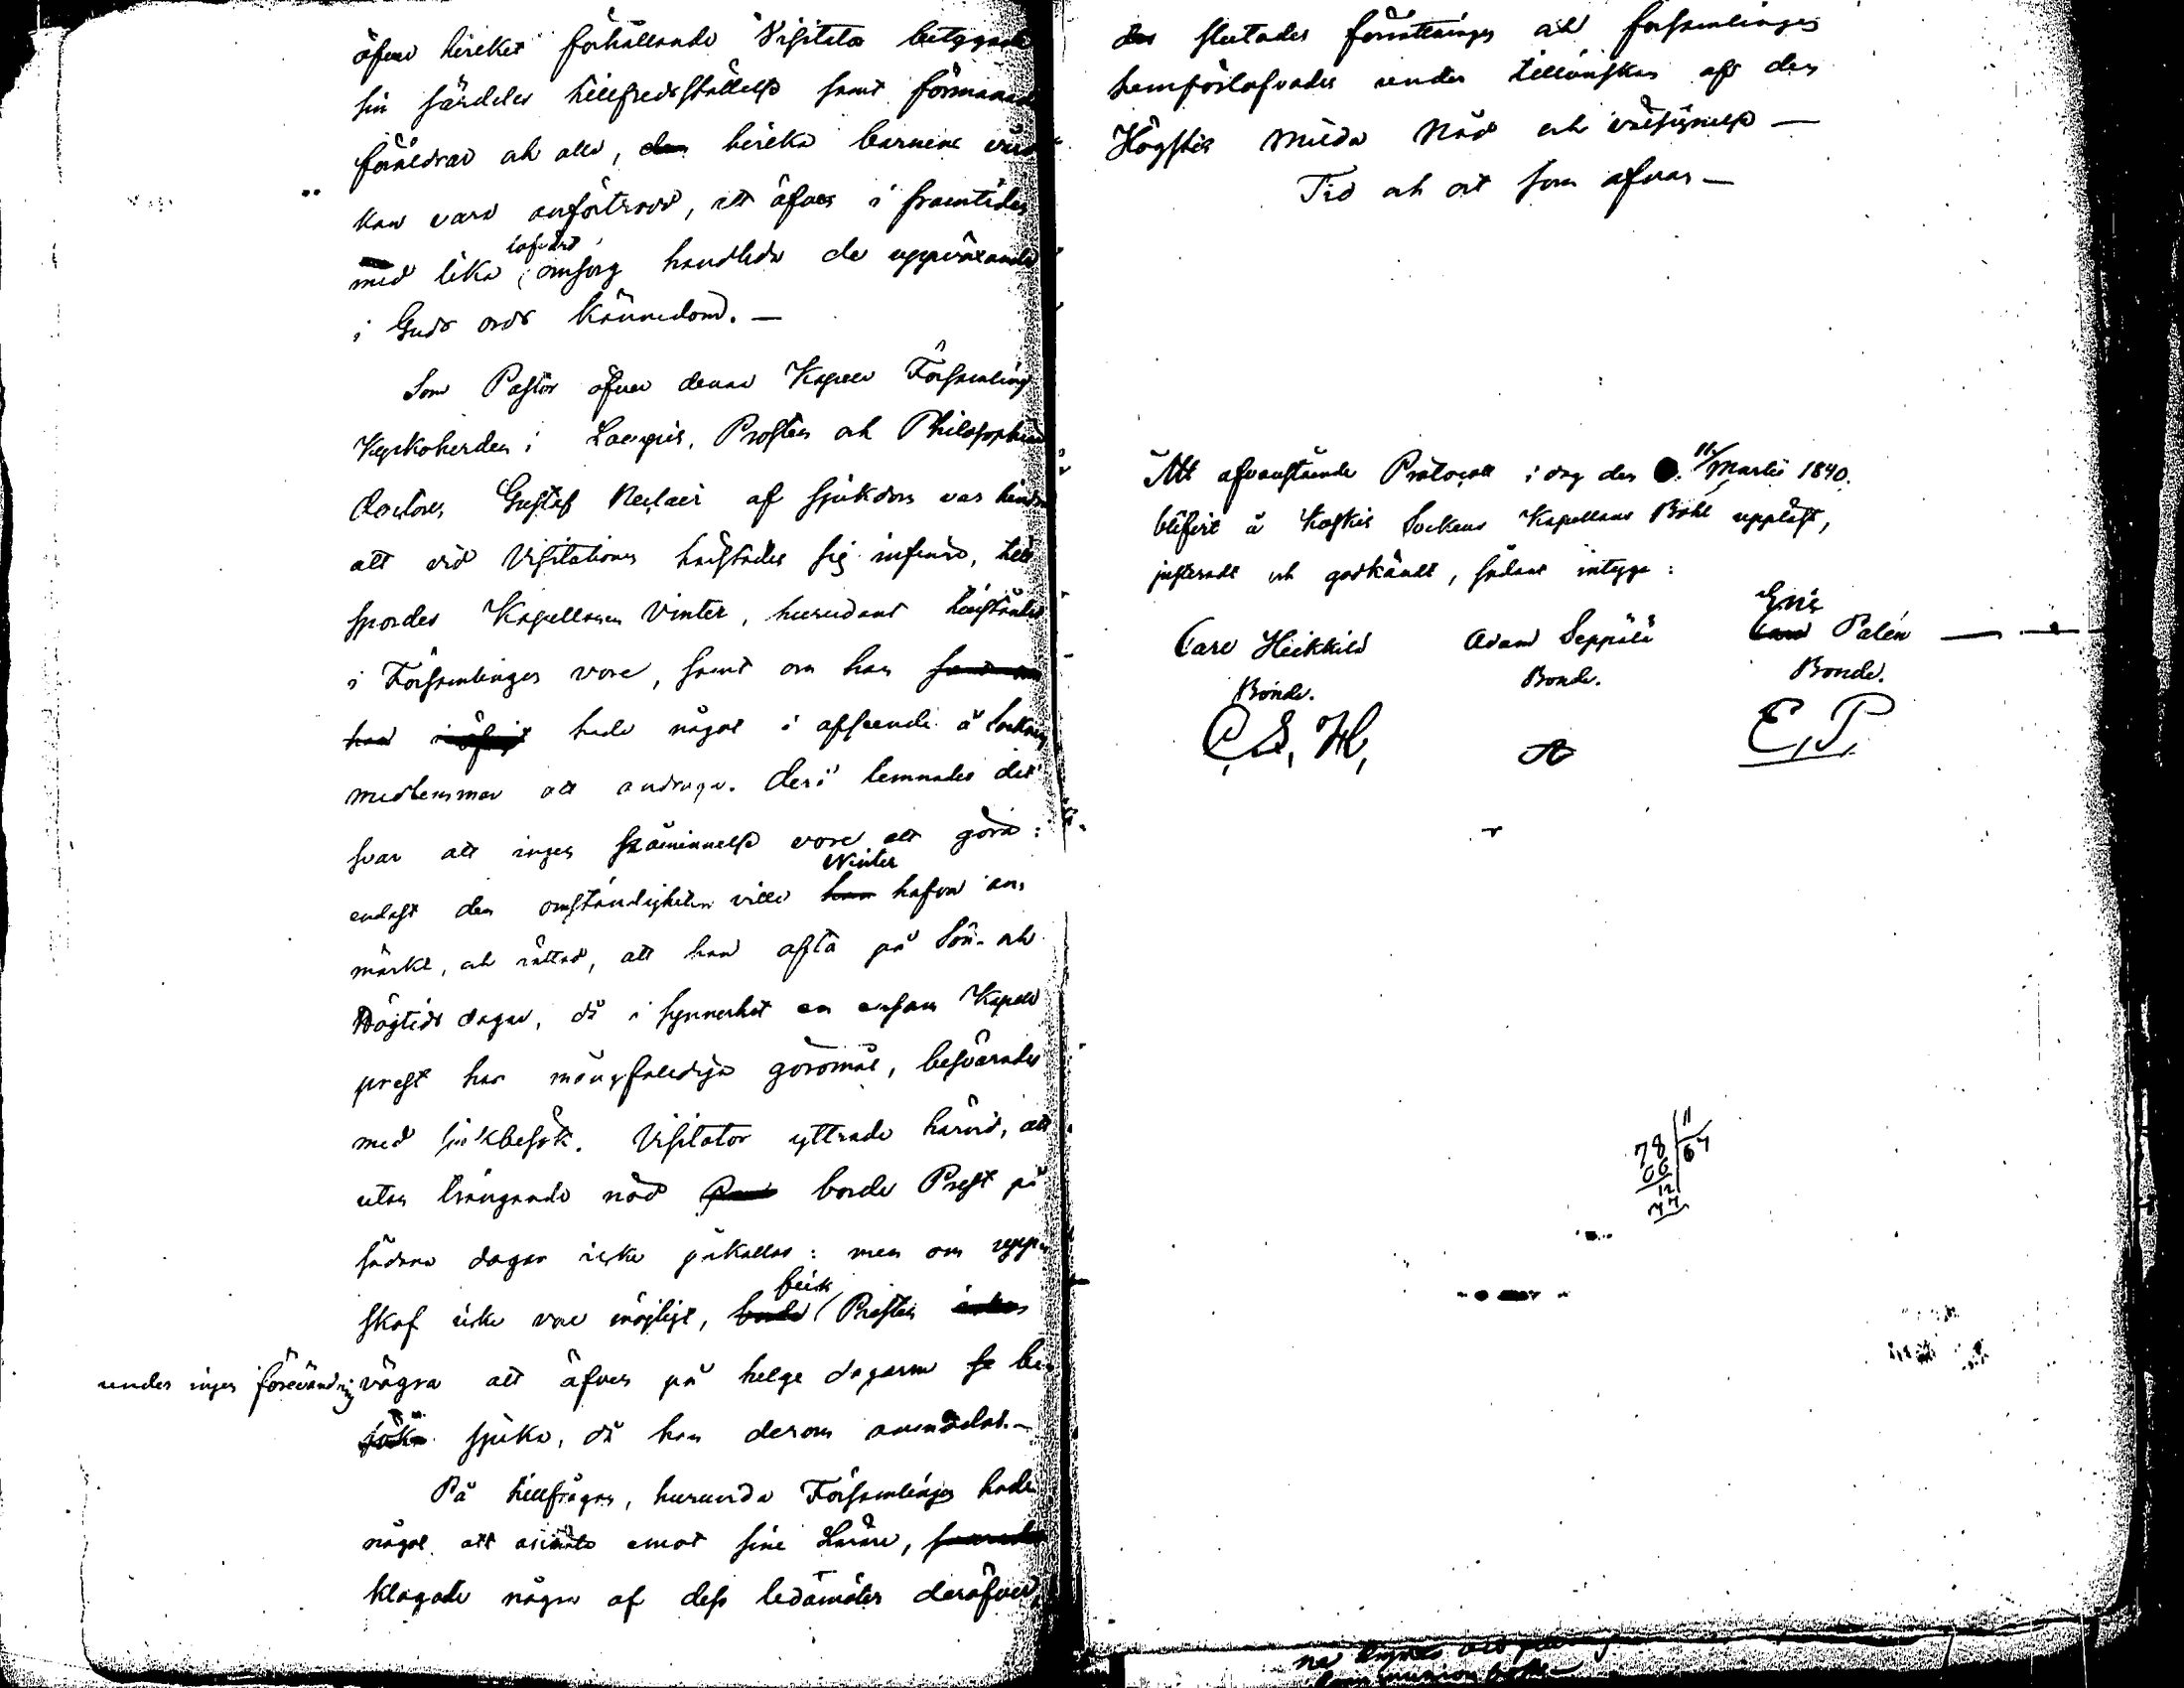 öfver hvilket förhållande Visitator betygade
sin särdeles tillfredsställelse samt förmanade
föräldrar och alla, dem hvilka barnens vård
kan vara anförtrodd, att äfven i framtiden
med lika lofvärd omsorg handleda de uppväxande
i Guds ords kännedom. —
Som Pastor öfver denna Kapell Församling
Kyrkoherden i Loimijoki, Prosten och Philosophiæ
doctoren Gustaf Reclair af sjukdom var hindrad
att vid Visitationen härstädes sig infinna, till
spordes Kapellanen Vinter, hurudant tillståndet
i Församlingen vore, samt om han
han hade något i afseende å Socknens
medlemmar att andraga. Deri lemnades det
svar att ingen påminnelse vore att göra:
endast den omständigheten ville han Winter hafva an-
märkt, och rättad, att han ofta på Sön- och
Högtids dagar, då i synnerhet en ensam Kapell
prest har mångfalldiga göromål, besvärades
med sjukbesök. Visitator yttrade härvid, att
utan trängande nöd borde Prest på
sådana dagar icke påkallas: men om uppe
skof icke vore möjligt, borde fick Presten
under ingen förevändning vägra att äfven på helge dagarne be-
söka sjuka, då han derom anmodades. —
På tillfrågan, huruvida Församlingen hade
något att emot sine Lärare,
klagade några af dess ledamöter deröfver,
slutades förrättningen och församlingen
hemförlofvades under tillönskan af den
Högstes milda Nåd och välsignelse —
Tid och ort som ofvan —
Att ofvanstående Protocoll i dag den 11 Martii 1840.
blifvit å Koskis Sockens Kapellans Bohl uppläst,
justeradt och godkändt, sådant intyga:
Carl Heikkilä Adam Seppälä Eric Palén
Bonde. Bonde. Bonde.
C, S, H, A E, P,
78 11
66 67
12
77